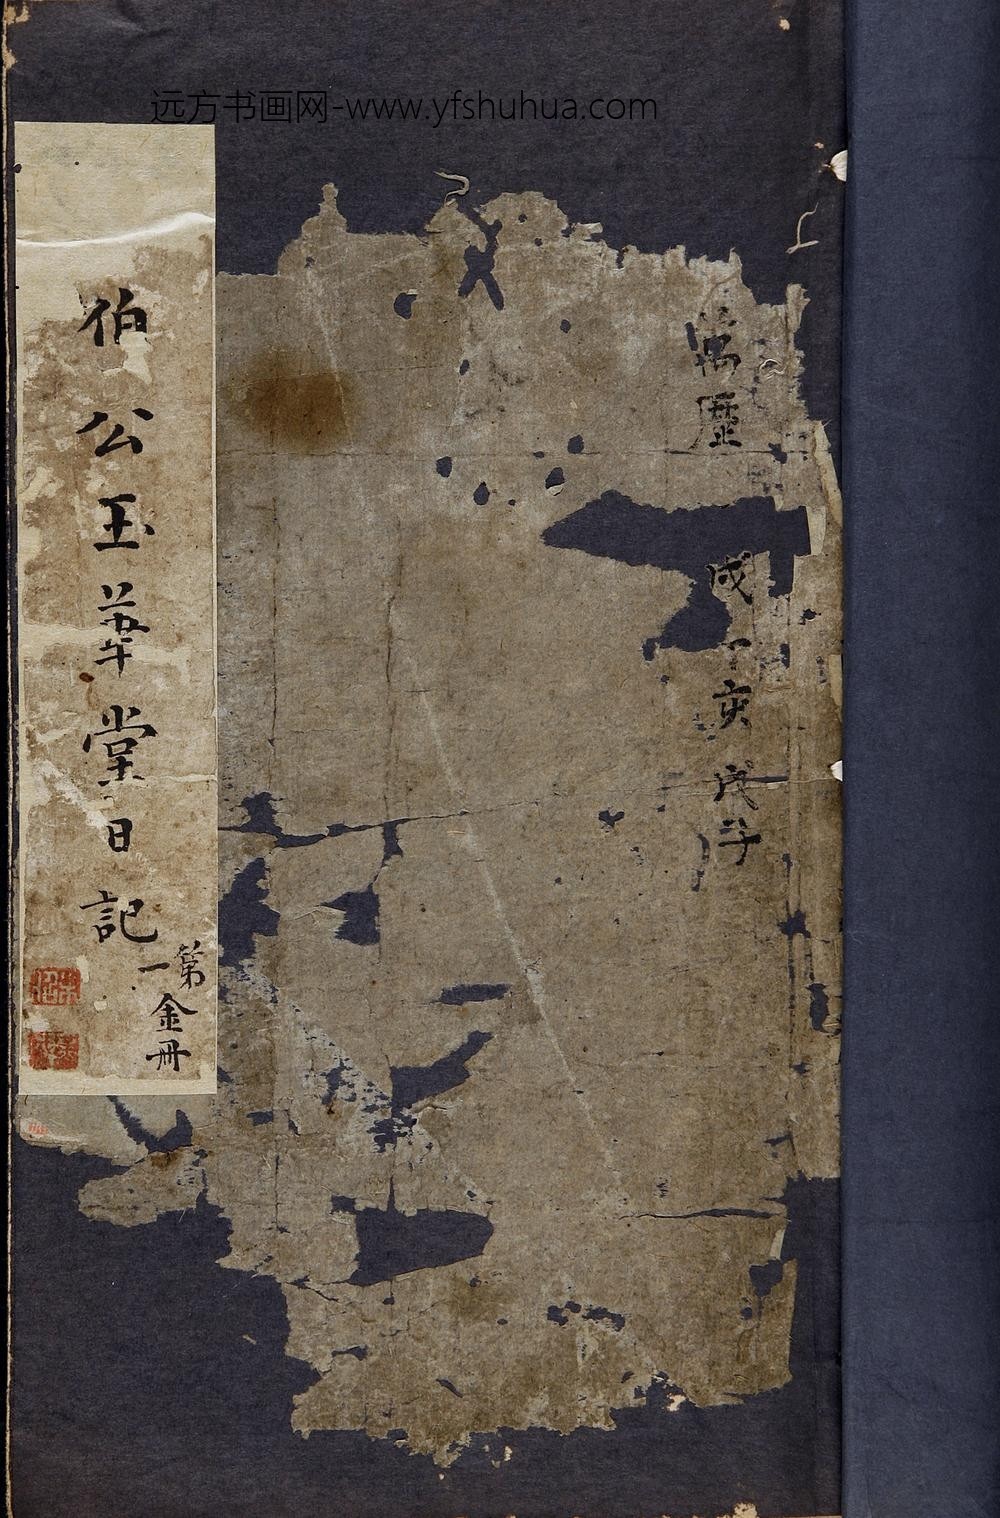 远方书画网-www.yfshuhua.com
萬曆
戌丁亥戊子
伯公玉華堂日記
第一
金冊